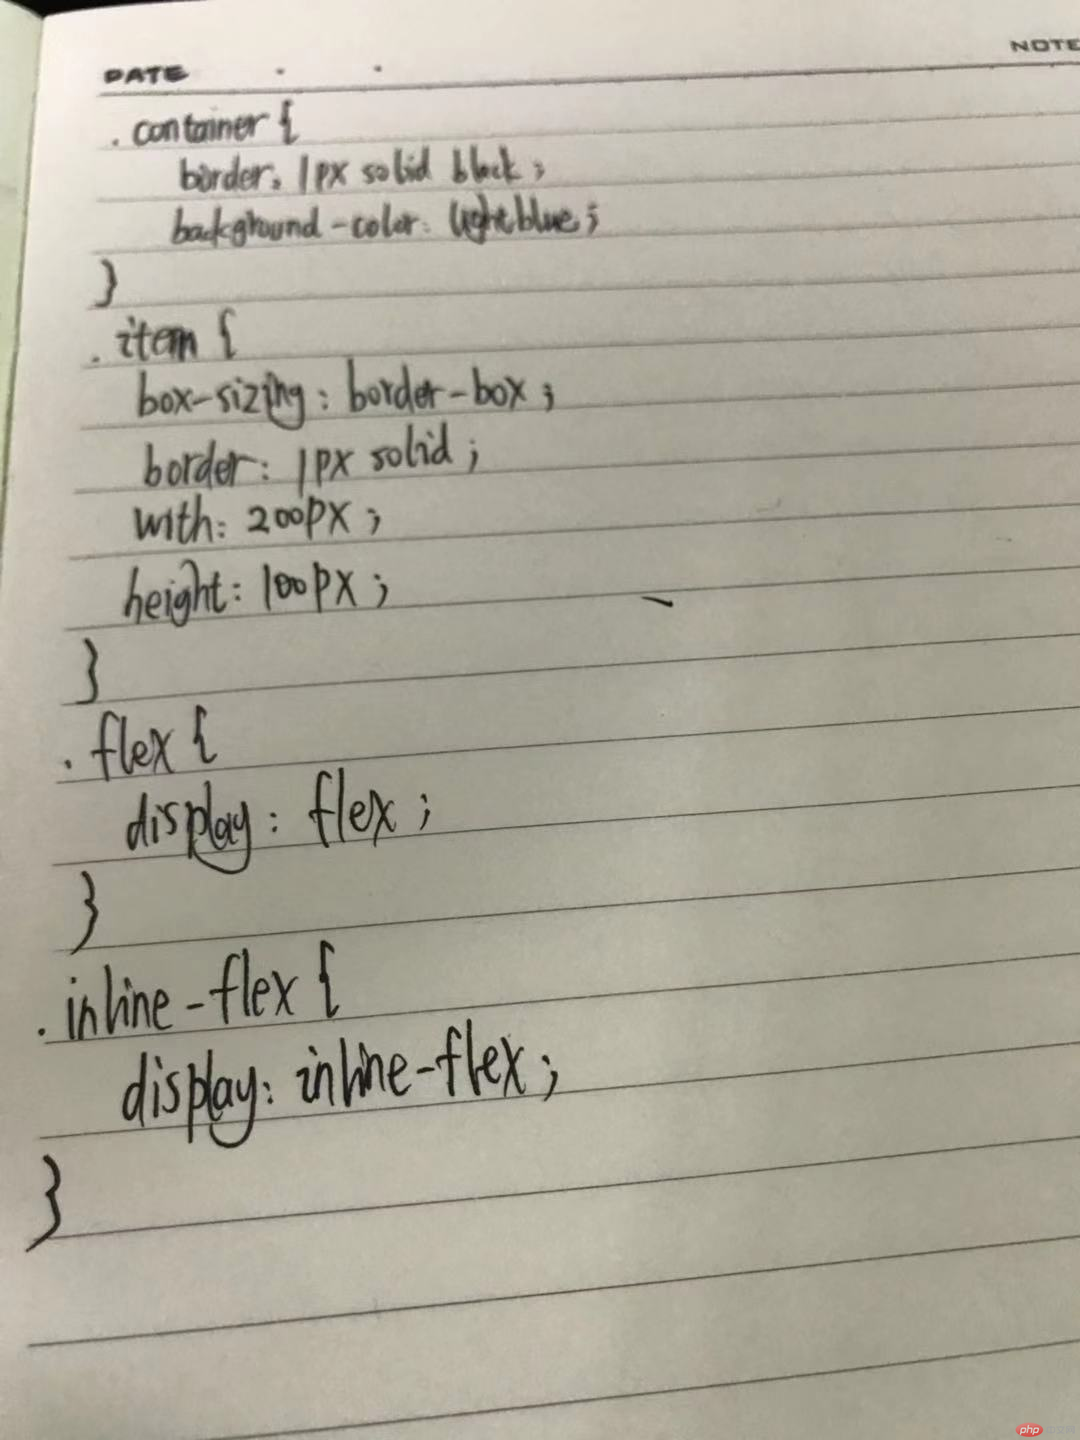 DATE . .
NOTE
.container {
border: 1px solid black;
background-color: lightblue;
}
.item {
box-sizing: border-box;
border: 1px solid;
with: 200px;
height: 100px;
}
.flex {
display: flex;
}
.inline-flex {
display: inline-flex;
}
php